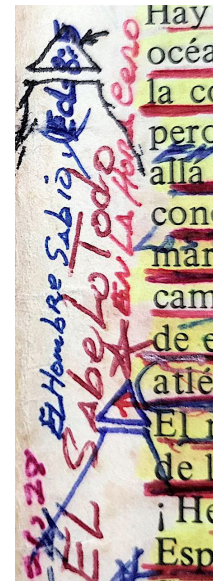 Hay
océa
la co
perc
alla
cono
mar
cam
de e
atlé
El r
de l
¡ He
Esp
El Hombre Sabio
EL SabeLo Todo
EN LA Hora Cero